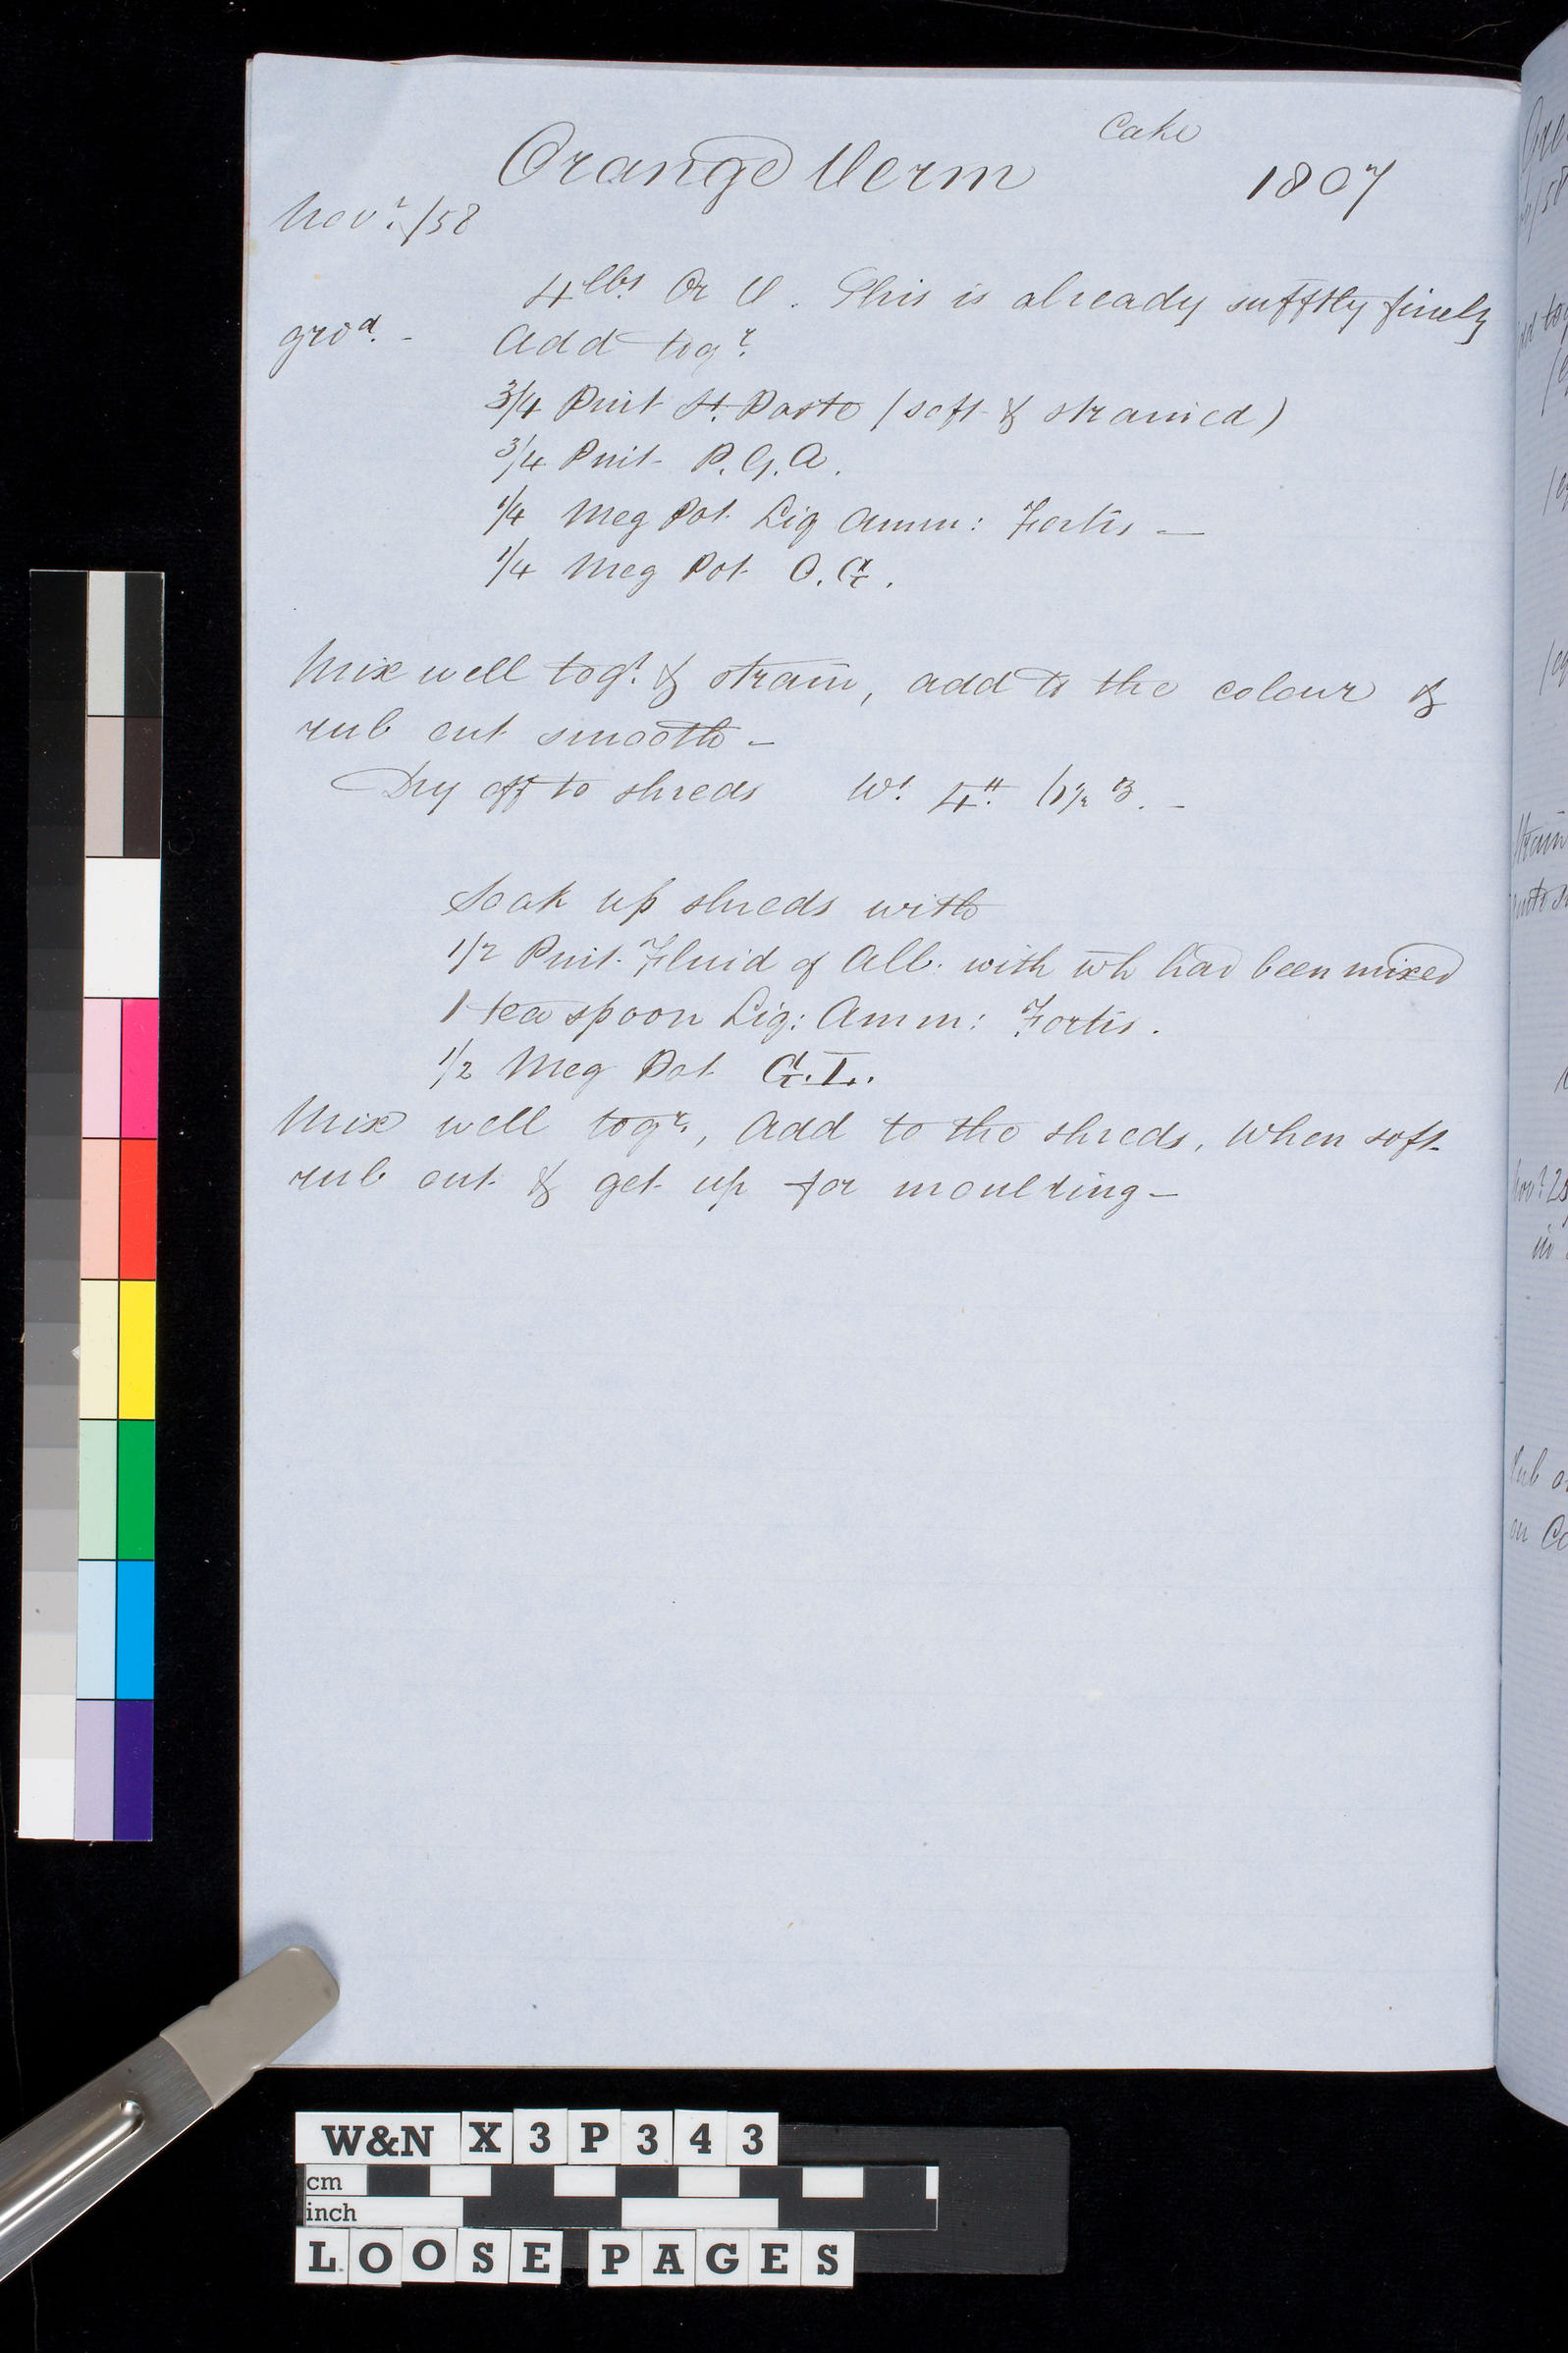 Cake
Orange Verm 1807
Novr. /58
4 lbs. Or V. This is already sufftly finely
grod. - Add togr.
3/4 Pint St. Paste (soft & strained)
3/4 Pint P. G. A.
1/4 Meg Pot Liq Amm: Fortis —
1/4 Meg Pot O. G.
Mix well togr. & strain, add to the colour &
rub out smooth -
Dry off to shreds Wt. 4 lb
Soak up shreds with
1/2 Pint Fluid of Alb. with wh has been mixed
1 tea spoon Liq: Amm: Fortis.
1/2 Meg Pot
Mix well togr., Add to the shreds, When soft
rub out & get up for moulding -
W&N X3P343
cm
inch
LOOSE PAGES